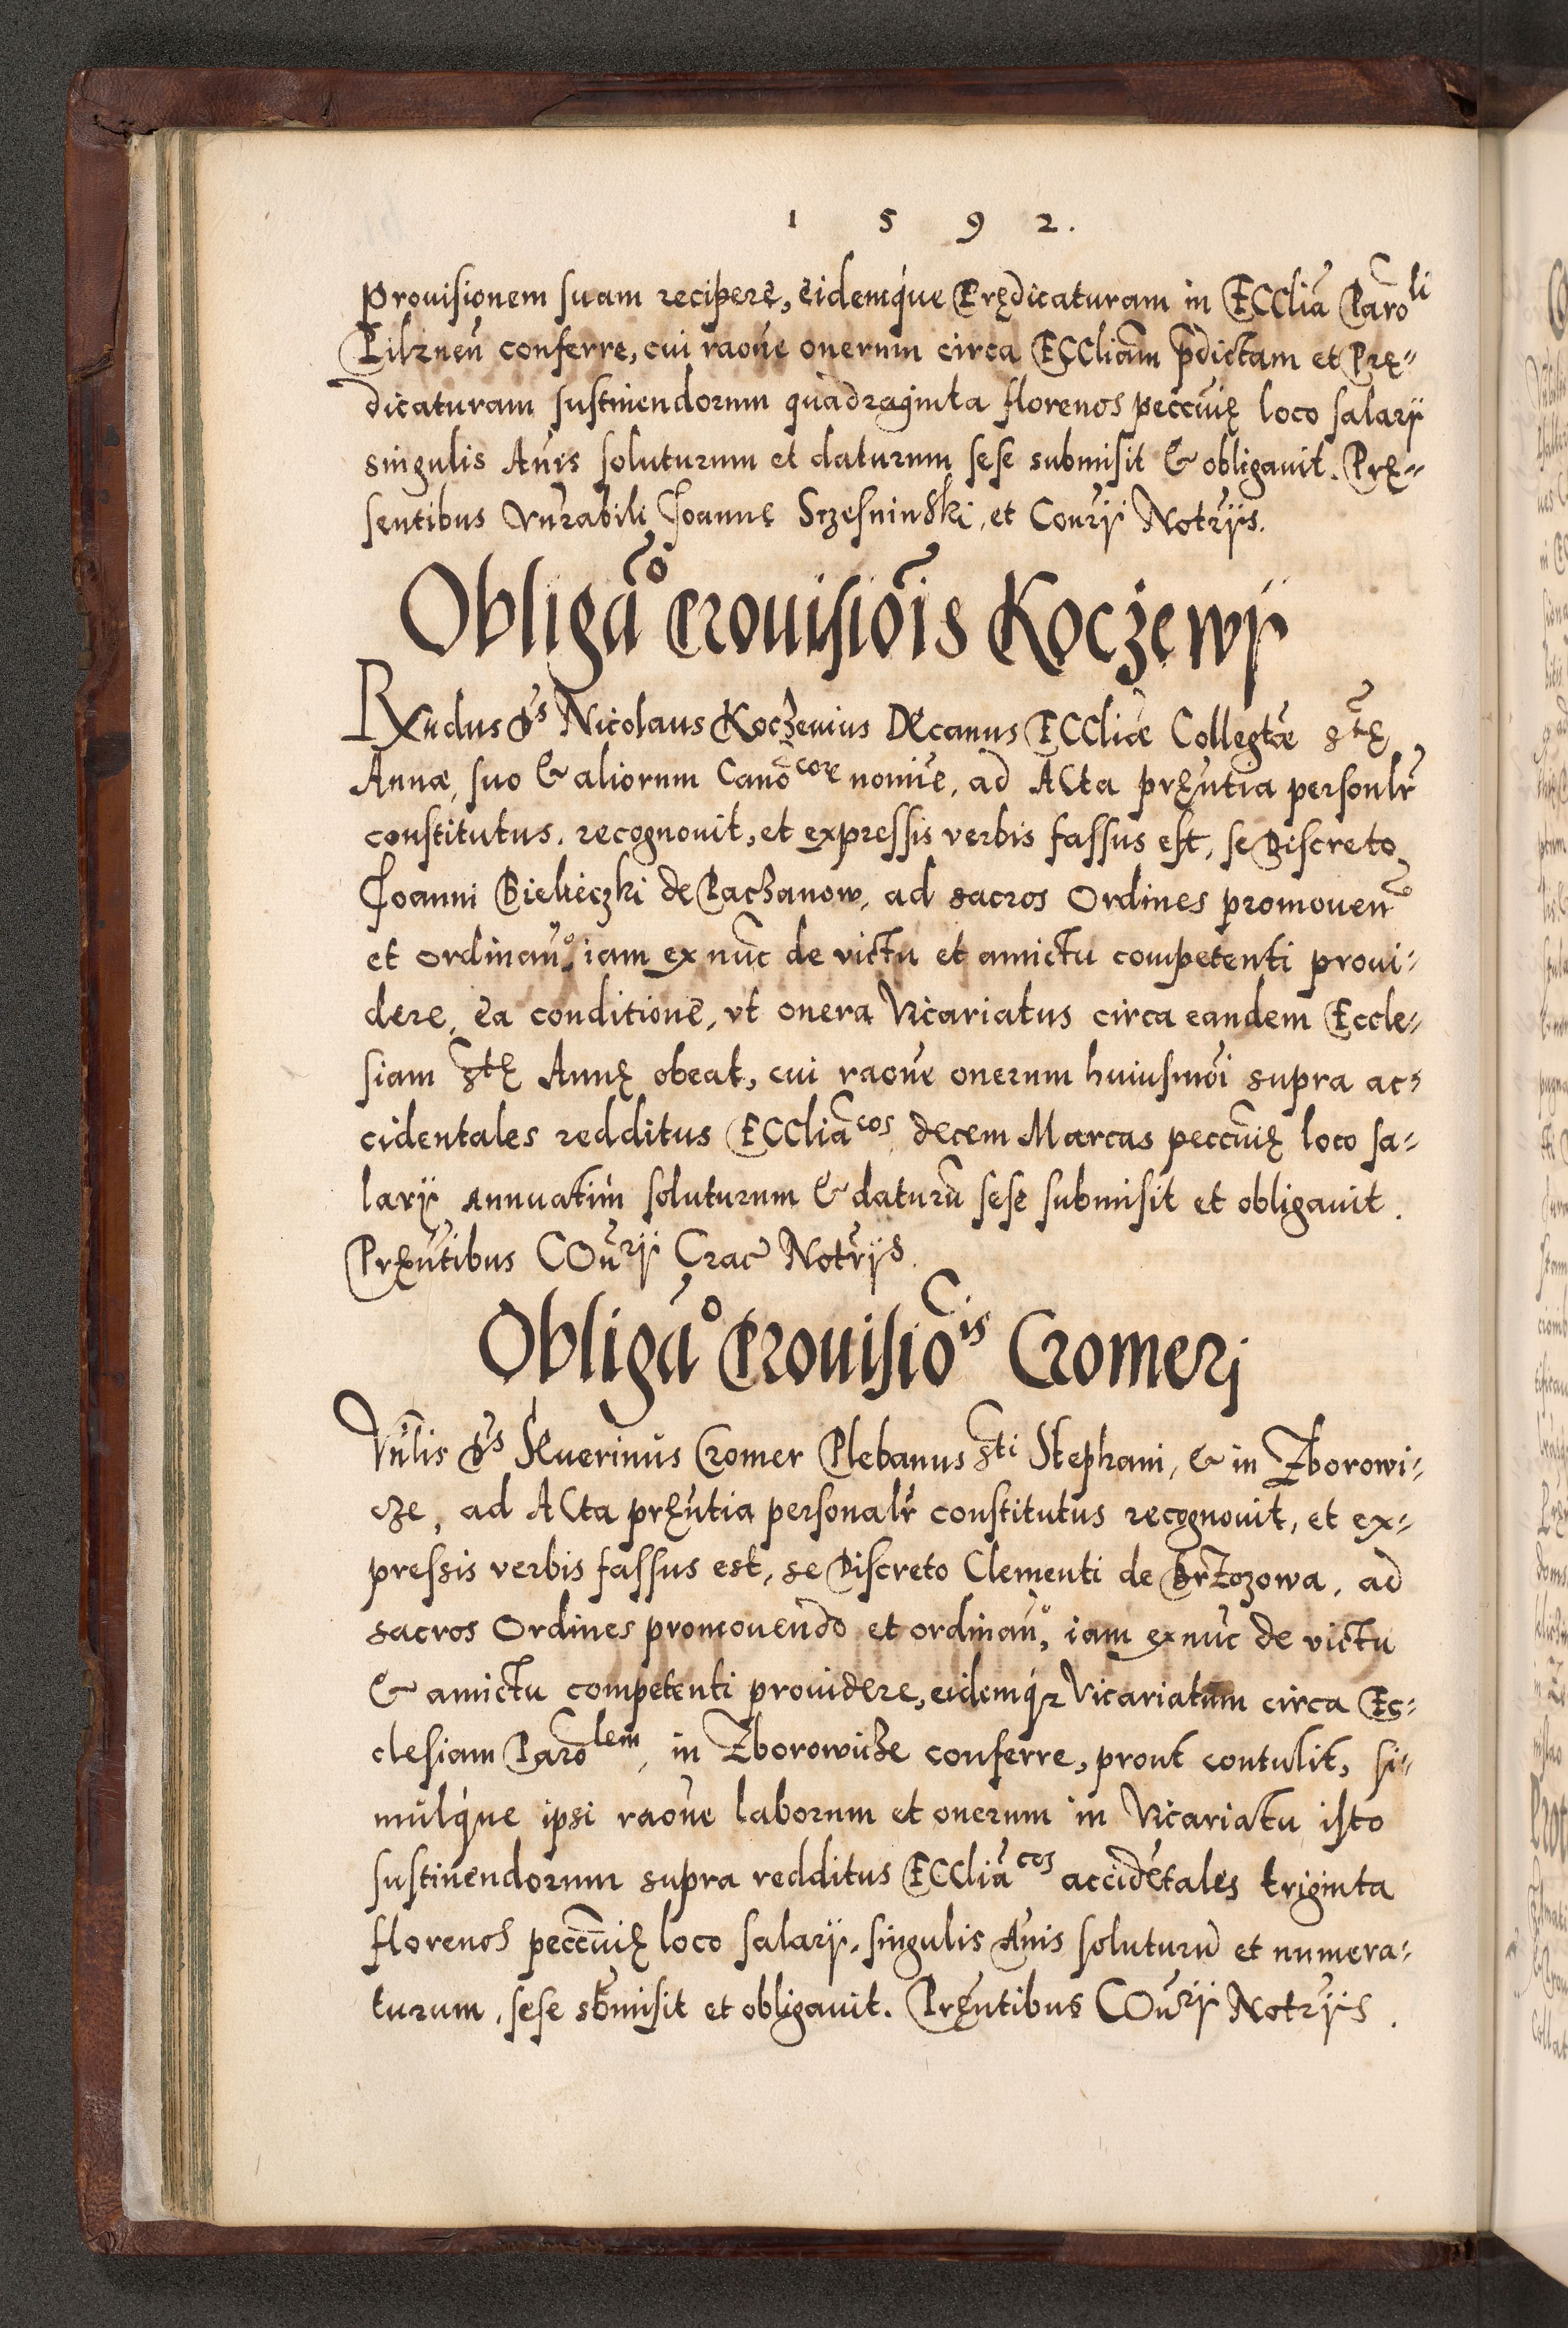 1592.
prouisionem suam recipere, eidemque Prędicaturam in ECCliã Parõli
Pilzneñ conferre, cui raõne onerum circa ECCliam p̃dictam et Prę=
dicaturam sustinendorum quadraginta florenos peccuñię loco salarÿ
singulis Añis soluturum et daturum sese submisit & obligauit. Prę=
sentibus Vn̄rabili Joanne Sczesninski, et Coñrÿ Notrÿs.
Obligãᵒ Prouisiõis Koczewÿ
Rx̃ndus Dñs Nicolaus Koczewius Decanus ECCliæ Collegtæ S̃tę
Annæ, suo & aliorum Canõcorꝫ nomiẽ, ad ACta pręñtia personlr̃
constitutus, recognouit, et expressis verbis fassus est, se Discreto
Joanni Bielieczki de Paczanow, ad sacros Ordines promoueñᵒ
et ordinañᵒ, iam ex nuñc de victu et amictu competenti proui=
dere, ea conditione, vt onera Vicariatus circa eandem Eccle=
siam S̃tę Annę obeat, cui raõne onerum huiusmõi supra ac=
cidentales redditus ECCliãcos, decem Marcas peccuñię loco sa=
larÿ Annuatim soluturum & daturũ sese submisit et obligauit.
Pręñtibus COñrÿ Crac̃ Notrÿs.
Obligãᵒ Prouisiõis Cromerj
Vñlis Dñs Seuerinus Cromer Plebanus S̃ti Stephani, & in Zborowi=
cze, ad ACta pręñtia personalr̃ constitutus recognouit, et ex=
pressis verbis fassus est, se Discreto Clementi de BrZozowa, ad
sacros Ordines promouendo et ordinañᵒ, iam ex nũc de victu
& amictu competenti prouidere, eidemqꝫ Vicariatum circa Ec=
clesiam Parõlem, in Zborowicze conferre, prout contulit, si=
mulque ipsi raõne laborum et onerum in Vicariatu isto
sustinendorum supra redditus ECCliãcos accidẽtales triginta
florenos peccuñię loco salarÿ, singulis Añis soluturũ et numera=
turum, sese sb̃misit et obligauit. Pręñtibus COñrÿ Notrÿs.